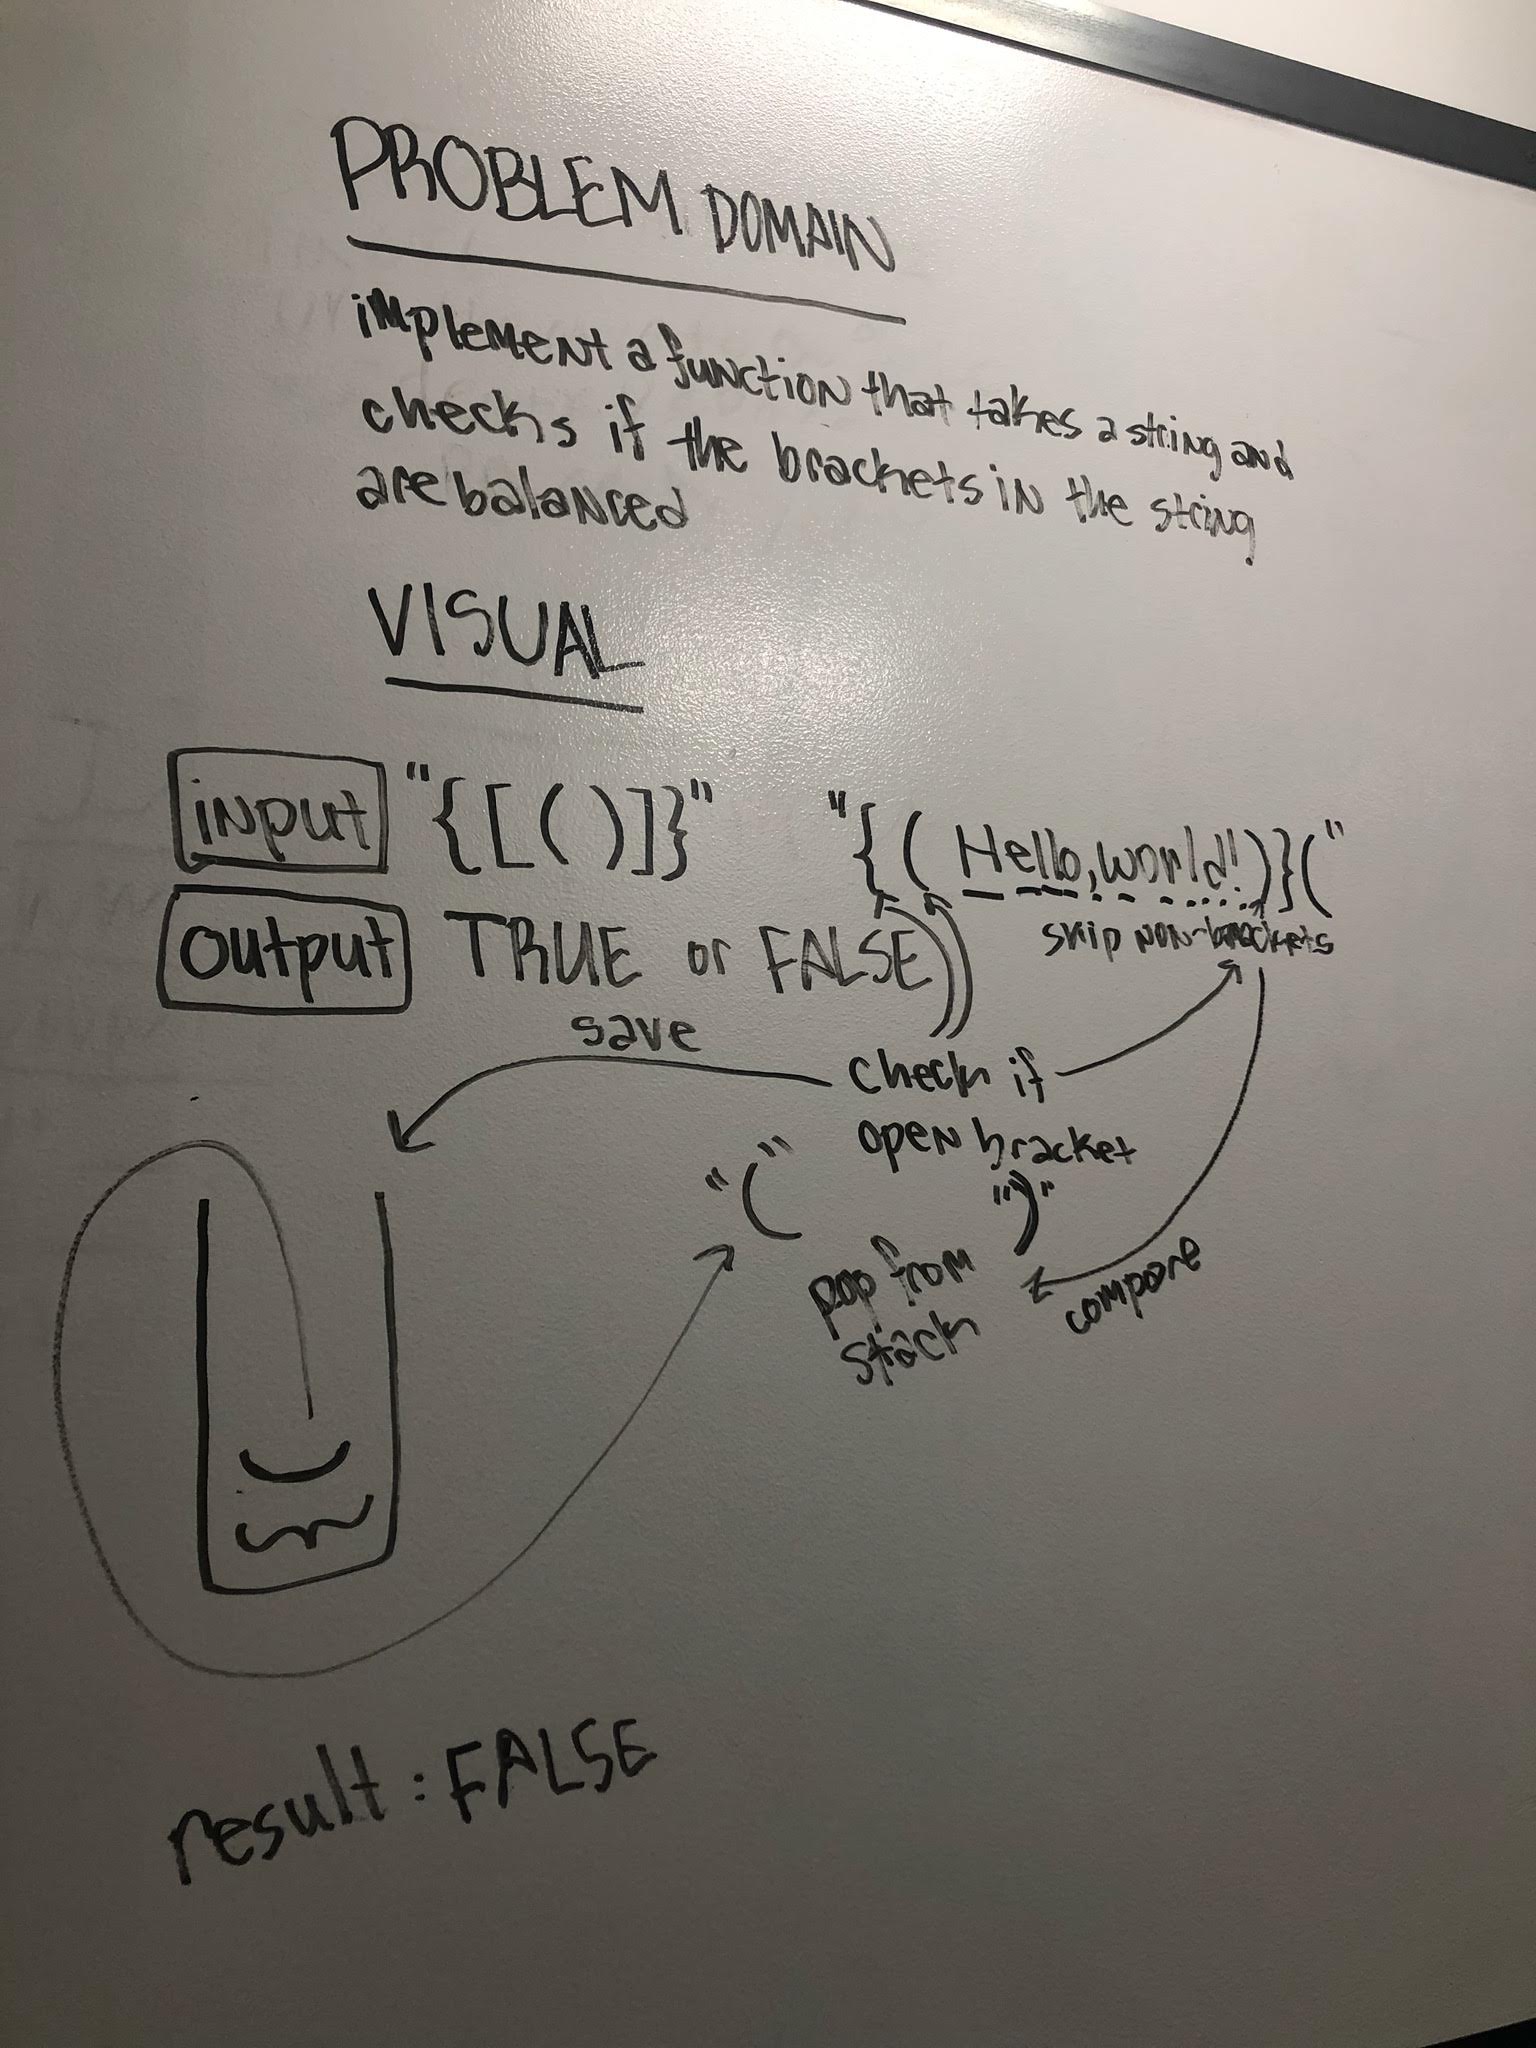 PROBLEM DOMAIN
implement a function that takes a string and
checks if the brackets in the string
are balanced
VISUAL
input "{[()]}" "{(Hello,world!)}("
skip non-brackets
output TRUE or FALSE
save
check if
open bracket
"("
")"
pop from
stack
compare
(
{
result: FALSE